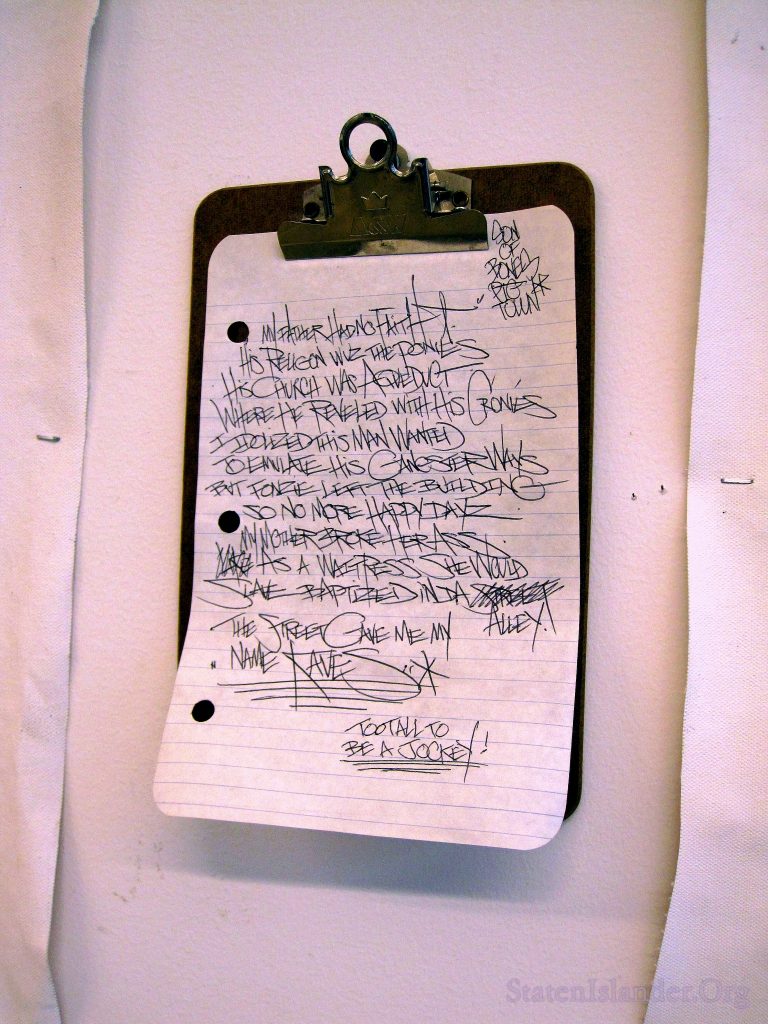 SON
OF
BONES
BIG
TOWN
MY FATHER HAD NO FAITH
HIS RELIGON WUZ THE PONIES
HIS CHURCH WAS AQUEDUCT
WHERE HE REVELED WITH HIS CRONIES
I IDOLIZED THIS MAN WANTED
TO EMULATE HIS GANGSTER WAYS
BUT FONZIE LEFT THE BUILDING
SO NO MORE HAPPY DAYZ
MY MOTHER BROKE HER ASS
AS A WAITRESS SHE WOULD
SLAVE BAPTIZED IN DA
ALLEY!
THE STREET GAVE ME MY
NAME
TOO TALL TO
BE A JOCKEY!
StatenIslander.Org